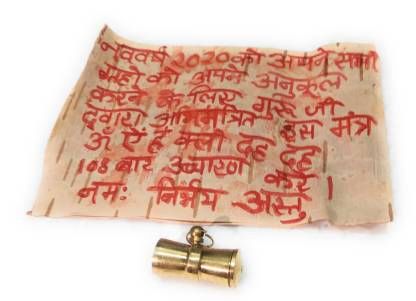 नववर्ष 2020 को अपने सभी
ग्रहो को अपने अनुकूल
करने के लिए गुरु जी
द्वारा अभिमंत्रित इस मंत्र
ॐ ऐं ह्रीं क्लीं दह दह
108 बार उच्चारण करे
नमः निर्भय अस्तु ।